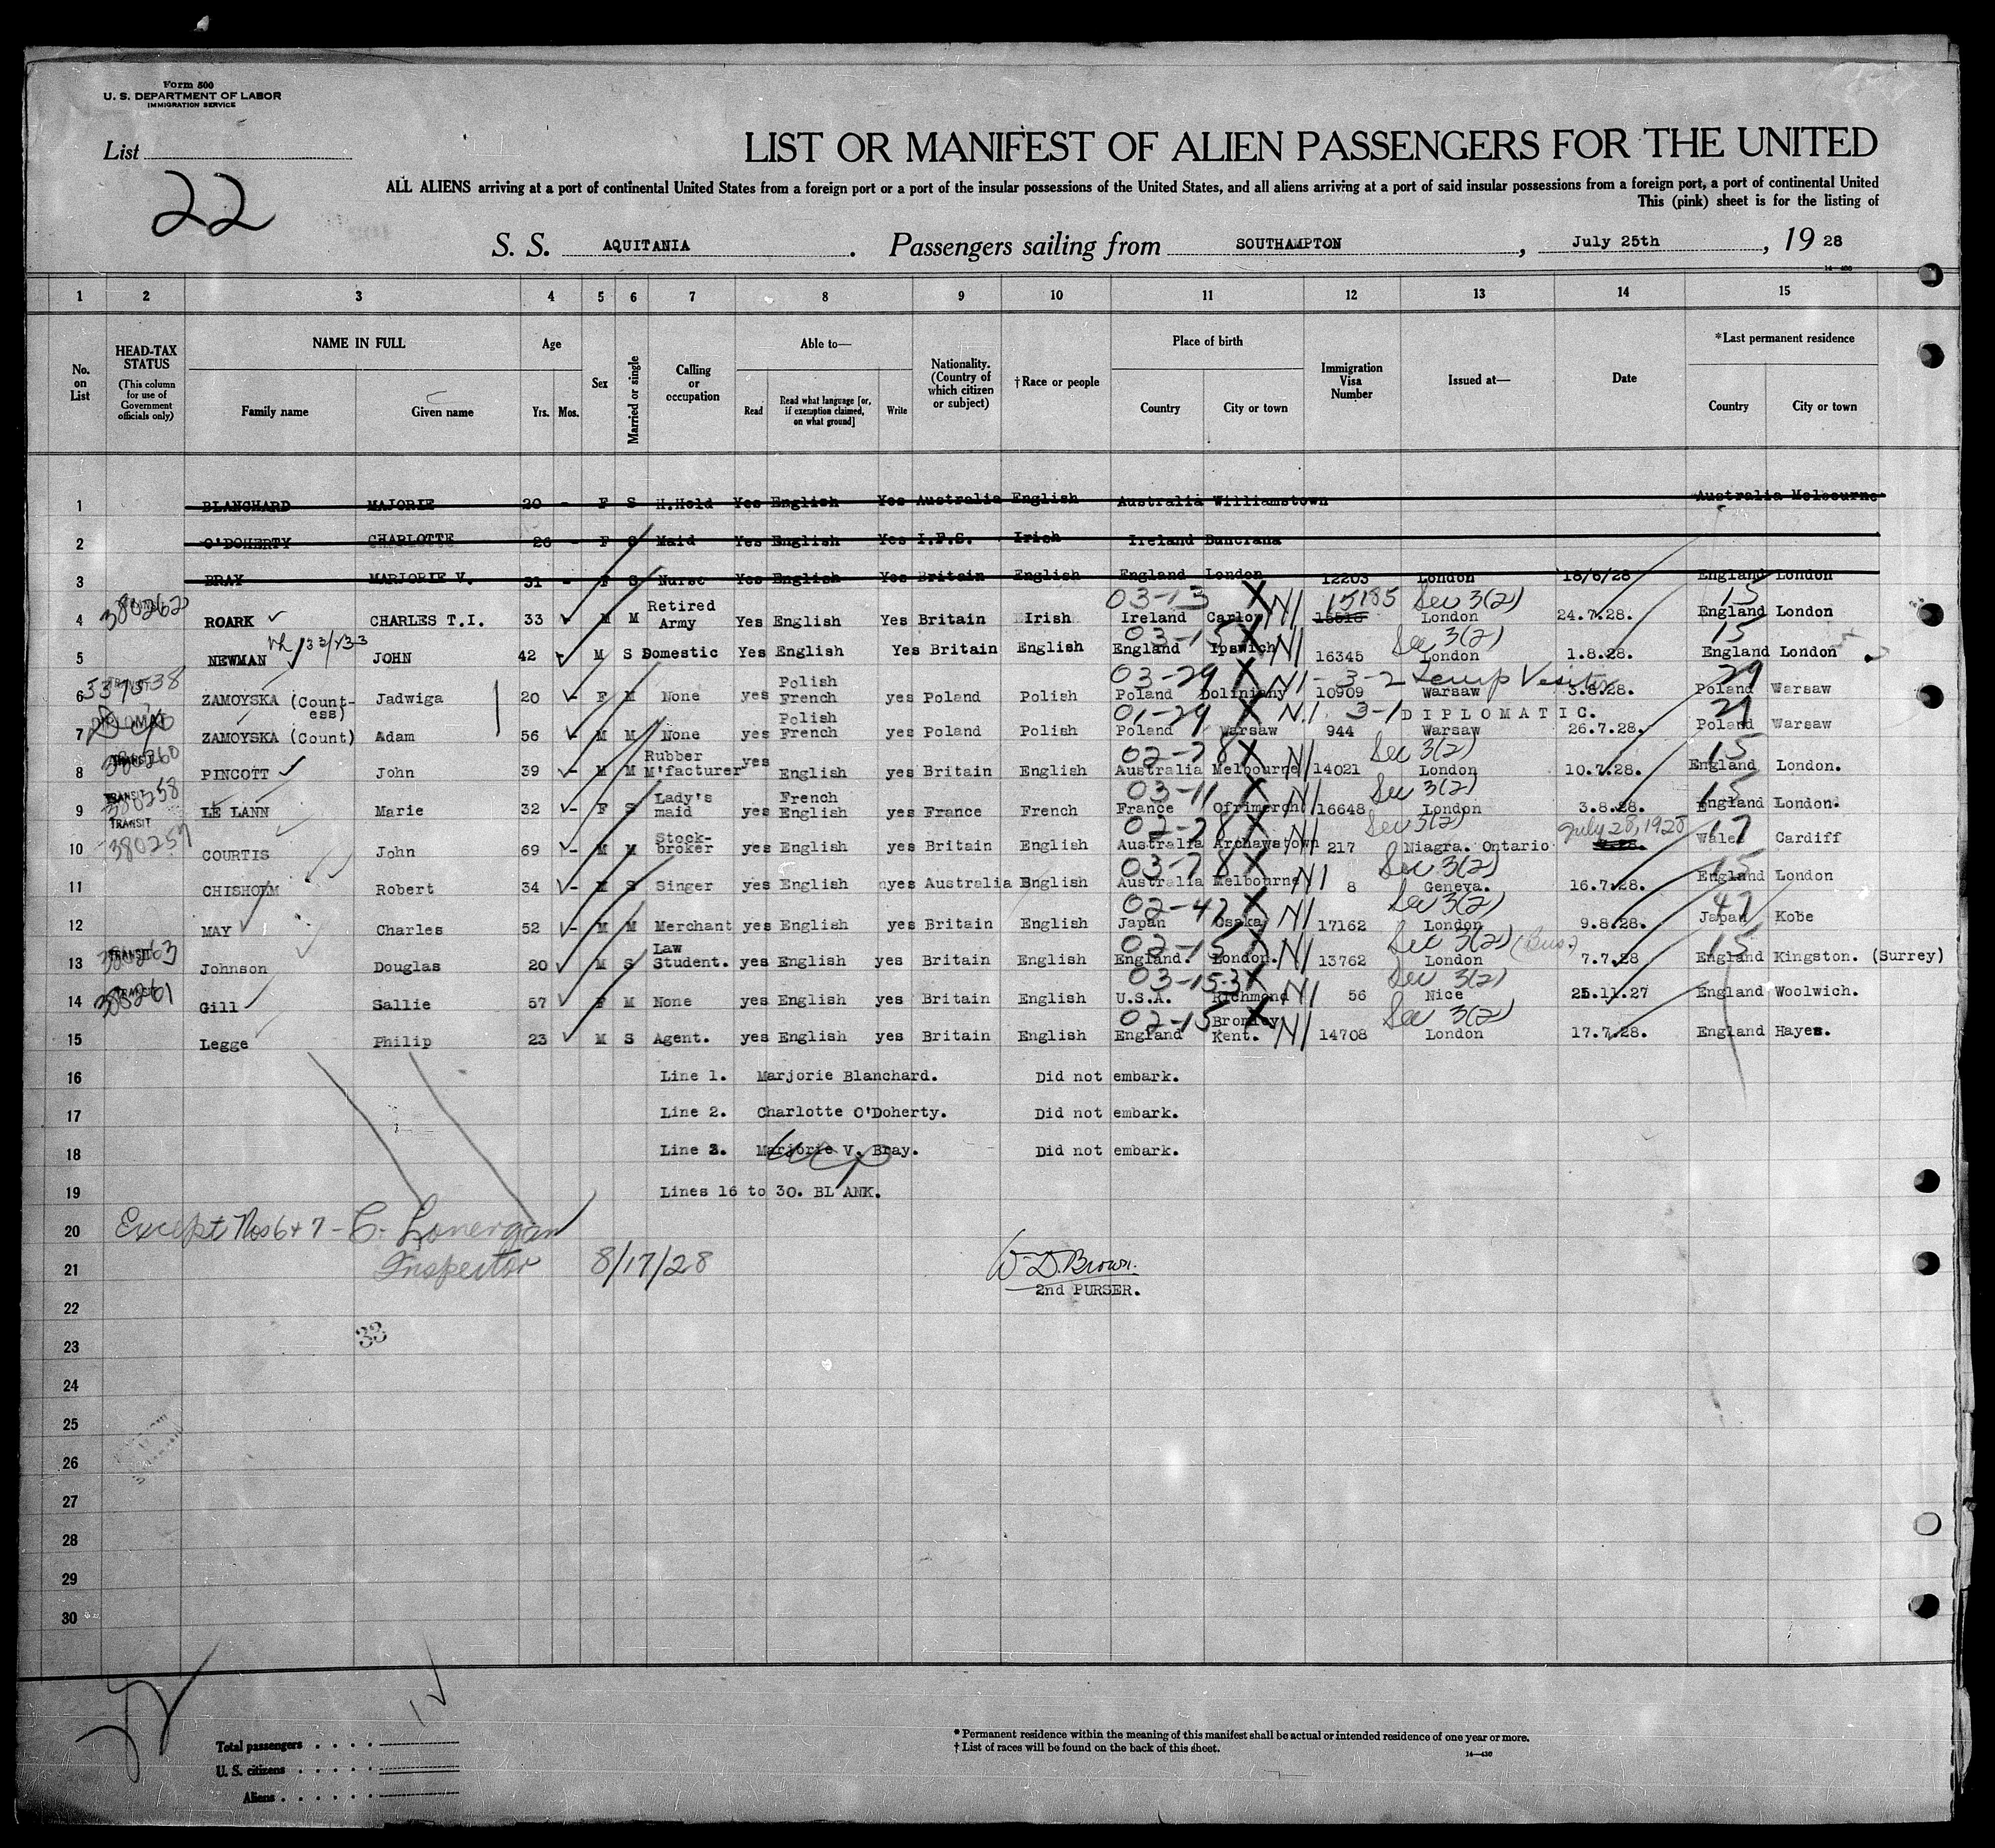 Form 500
U. S. DEPARTMENT OF LABOR
IMMIGRATION SERVICE
List
22
LIST OR MANIFEST OF ALIEN PASSENGERS FOR THE UNITED
ALL ALIENS arriving at a port of continental United States from a foreign port or a port of the insular possessions of the United States, and all aliens arriving at a port of said insular possessions from a foreign port, a port of continental United
This (pink) sheet is for the listing of
S. S. AQUITANIA. Passengers sailing from SOUTHAMPTON, July 25th, 19 28
14—430
1 2 3 4 5 6 7 8 9 10 11 12 13 14 15
No. on List
HEAD-TAX STATUS (This column for use of Government officials only)
NAME IN FULL
Family name Given name
Age
Yrs. Mos.
Sex
Married or single
Calling or occupation
Able to—
Read Read what language [or, if exemption claimed, on what ground] Write
Nationality. (Country of which citizen or subject)
†Race or people
Place of birth
Country City or town
Immigration Visa Number
Issued at—
Date
*Last permanent residence
Country City or town
1 BLANCHARD MAJORIE 20 - F S H.Hold Yes English Yes Australia English Australia Williamstown Australia Melbourne
2 O'DOHERTY CHARLOTTE 26 - F S Maid Yes English Yes I.F.S. Irish Ireland Buncrana
3 BRAY MARJORIE V. 31 - F S Nurse Yes English Yes Britain English England London 12203 London 18/6/28 England London
03-13 X NI 15185 Sec 3(2) 15
4 380262 ROARK CHARLES T.I. 33 M M Retired Army Yes English Yes Britain Irish Ireland Carlow London 24.7.28. England London
03-15 X NI Sec 3(2) 15
5 NEWMAN JOHN 42 - M S Domestic Yes English Yes Britain English England Ipswich 16345 London 1.8.28. England London
03-29 X NI - 3-2 Temp Visitor 29
6 537538 ZAMOYSKA (Countess) Jadwiga 20 - F M None yes Polish French yes Poland Polish Poland Doliniany 10909 Warsaw 3.8.28. Poland Warsaw
01-29 X NI 3-1 DIPLOMATIC. 29
7 DIPLOMAT ZAMOYSKA (Count) Adam 56 - M M None yes Polish French yes Poland Polish Poland Warsaw 944 Warsaw 26.7.28. Poland Warsaw
02-78 X NI Sec 3(2) 15
8 TRANSIT 380260 PINCOTT John 39 - M M Rubber M'facturer yes English yes Britain English Australia Melbourne 14021 London 10.7.28. England London.
03-11 X NI Sec 3(2) 15
9 TRANSIT 380258 LE LANN Marie 32 - F S Lady's maid yes French English yes France French France 16648 London 3.8.28. England London.
02-78 X NI Sec 3(2) July 28, 1928 17
10 TRANSIT 380257 COURTIS John 69 - M M Stock-broker yes English yes Britain English Australia Archawstown 217 Niagra. Ontario Wales Cardiff
03-78 X NI Sec 3(2) 15
11 CHISHOLM Robert 34 - M S Singer yes English yes Australia English Australia Melbourne 8 Geneva. 16.7.28. England London
02-47 X NI Sec 3(2) 47
12 MAY Charles 52 - M M Merchant yes English yes Britain English Japan Osaka 17162 London 9.8.28. Japan Kobe
02-15 X NI Sec 3(2) (Bus.) 15
13 TRANSIT 380263 Johnson Douglas 20 M S Law Student. yes English yes Britain English England. London. 13762 London 7.7.28 England Kingston. (Surrey)
03-15-3 X NI Sec 3(2)
14 TRANSIT 380261 Gill Sallie 57 F M None yes English yes Britain English U.S.A. Richmond 56 Nice 25.11.27 England Woolwich.
02-15 X NI Sec 3(2)
15 Legge Philip 23 M S Agent. yes English yes Britain English England Bromley Kent. 14708 London 17.7.28. England Hayes.
16 Line 1. Marjorie Blanchard. Did not embark.
17 Line 2. Charlotte O'Doherty. Did not embark.
18 Line 3. Marjorie V. Bray. Did not embark.
19 Lines 16 to 30. BLANK.
20 Except Nos 6 & 7 - C. Lonergan
21 Inspector 8/17/28 W. D. Brown.
2nd PURSER.
22
23 33
24
25
26
27
28
29
30
Total passengers
U. S. citizens
Aliens
* Permanent residence within the meaning of this manifest shall be actual or intended residence of one year or more.
† List of races will be found on the back of this sheet.
14—430